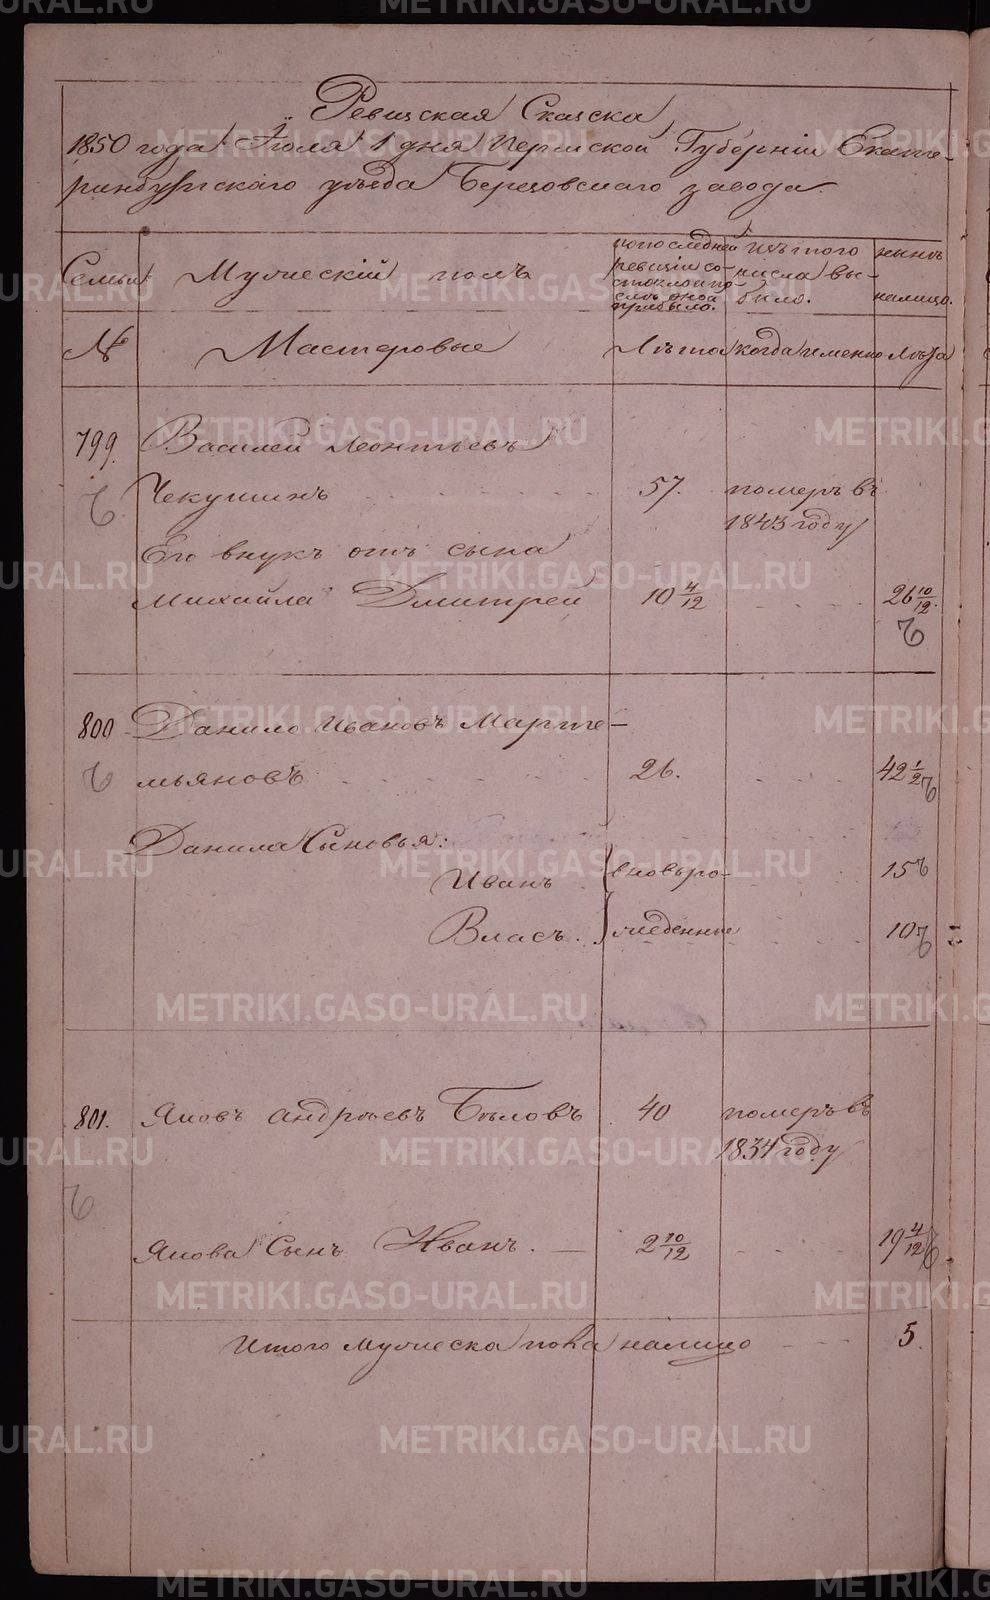 Ревизская Сказка
1850 года Іюля 1 дня Пермской Губерніи Екате-
ринбургскаго уѣзда Березовскаго завода
Семьи Мужескій полъ
по последней ревизіи со-стояло и по-слѣ оной прибыло.
Изъ того числа вы-было.
нынѣ на лицо.
№ Мастеровые Лѣта когда именно Лѣта
799. Василей Леонтьевъ
Чекушинъ 57. померъ въ
1843 году
Его внукъ отъ сына
Михайла Дмитрей 10 4/12 26 10/12.
800 Данило Ивановъ Марте-
мьяновъ 26. 42 1/2
Данила Сыновья:
Иванъ вновьро- 15
Власъ. жденные 10
801. Яковъ Андреевъ Бѣловъ 40 померъ въ
1834 году
Якова Сынъ Иванъ. 2 10/12 19 4/12
Итого мужеска пола на лицо 5.
METRIKI.GASO-URAL.RU